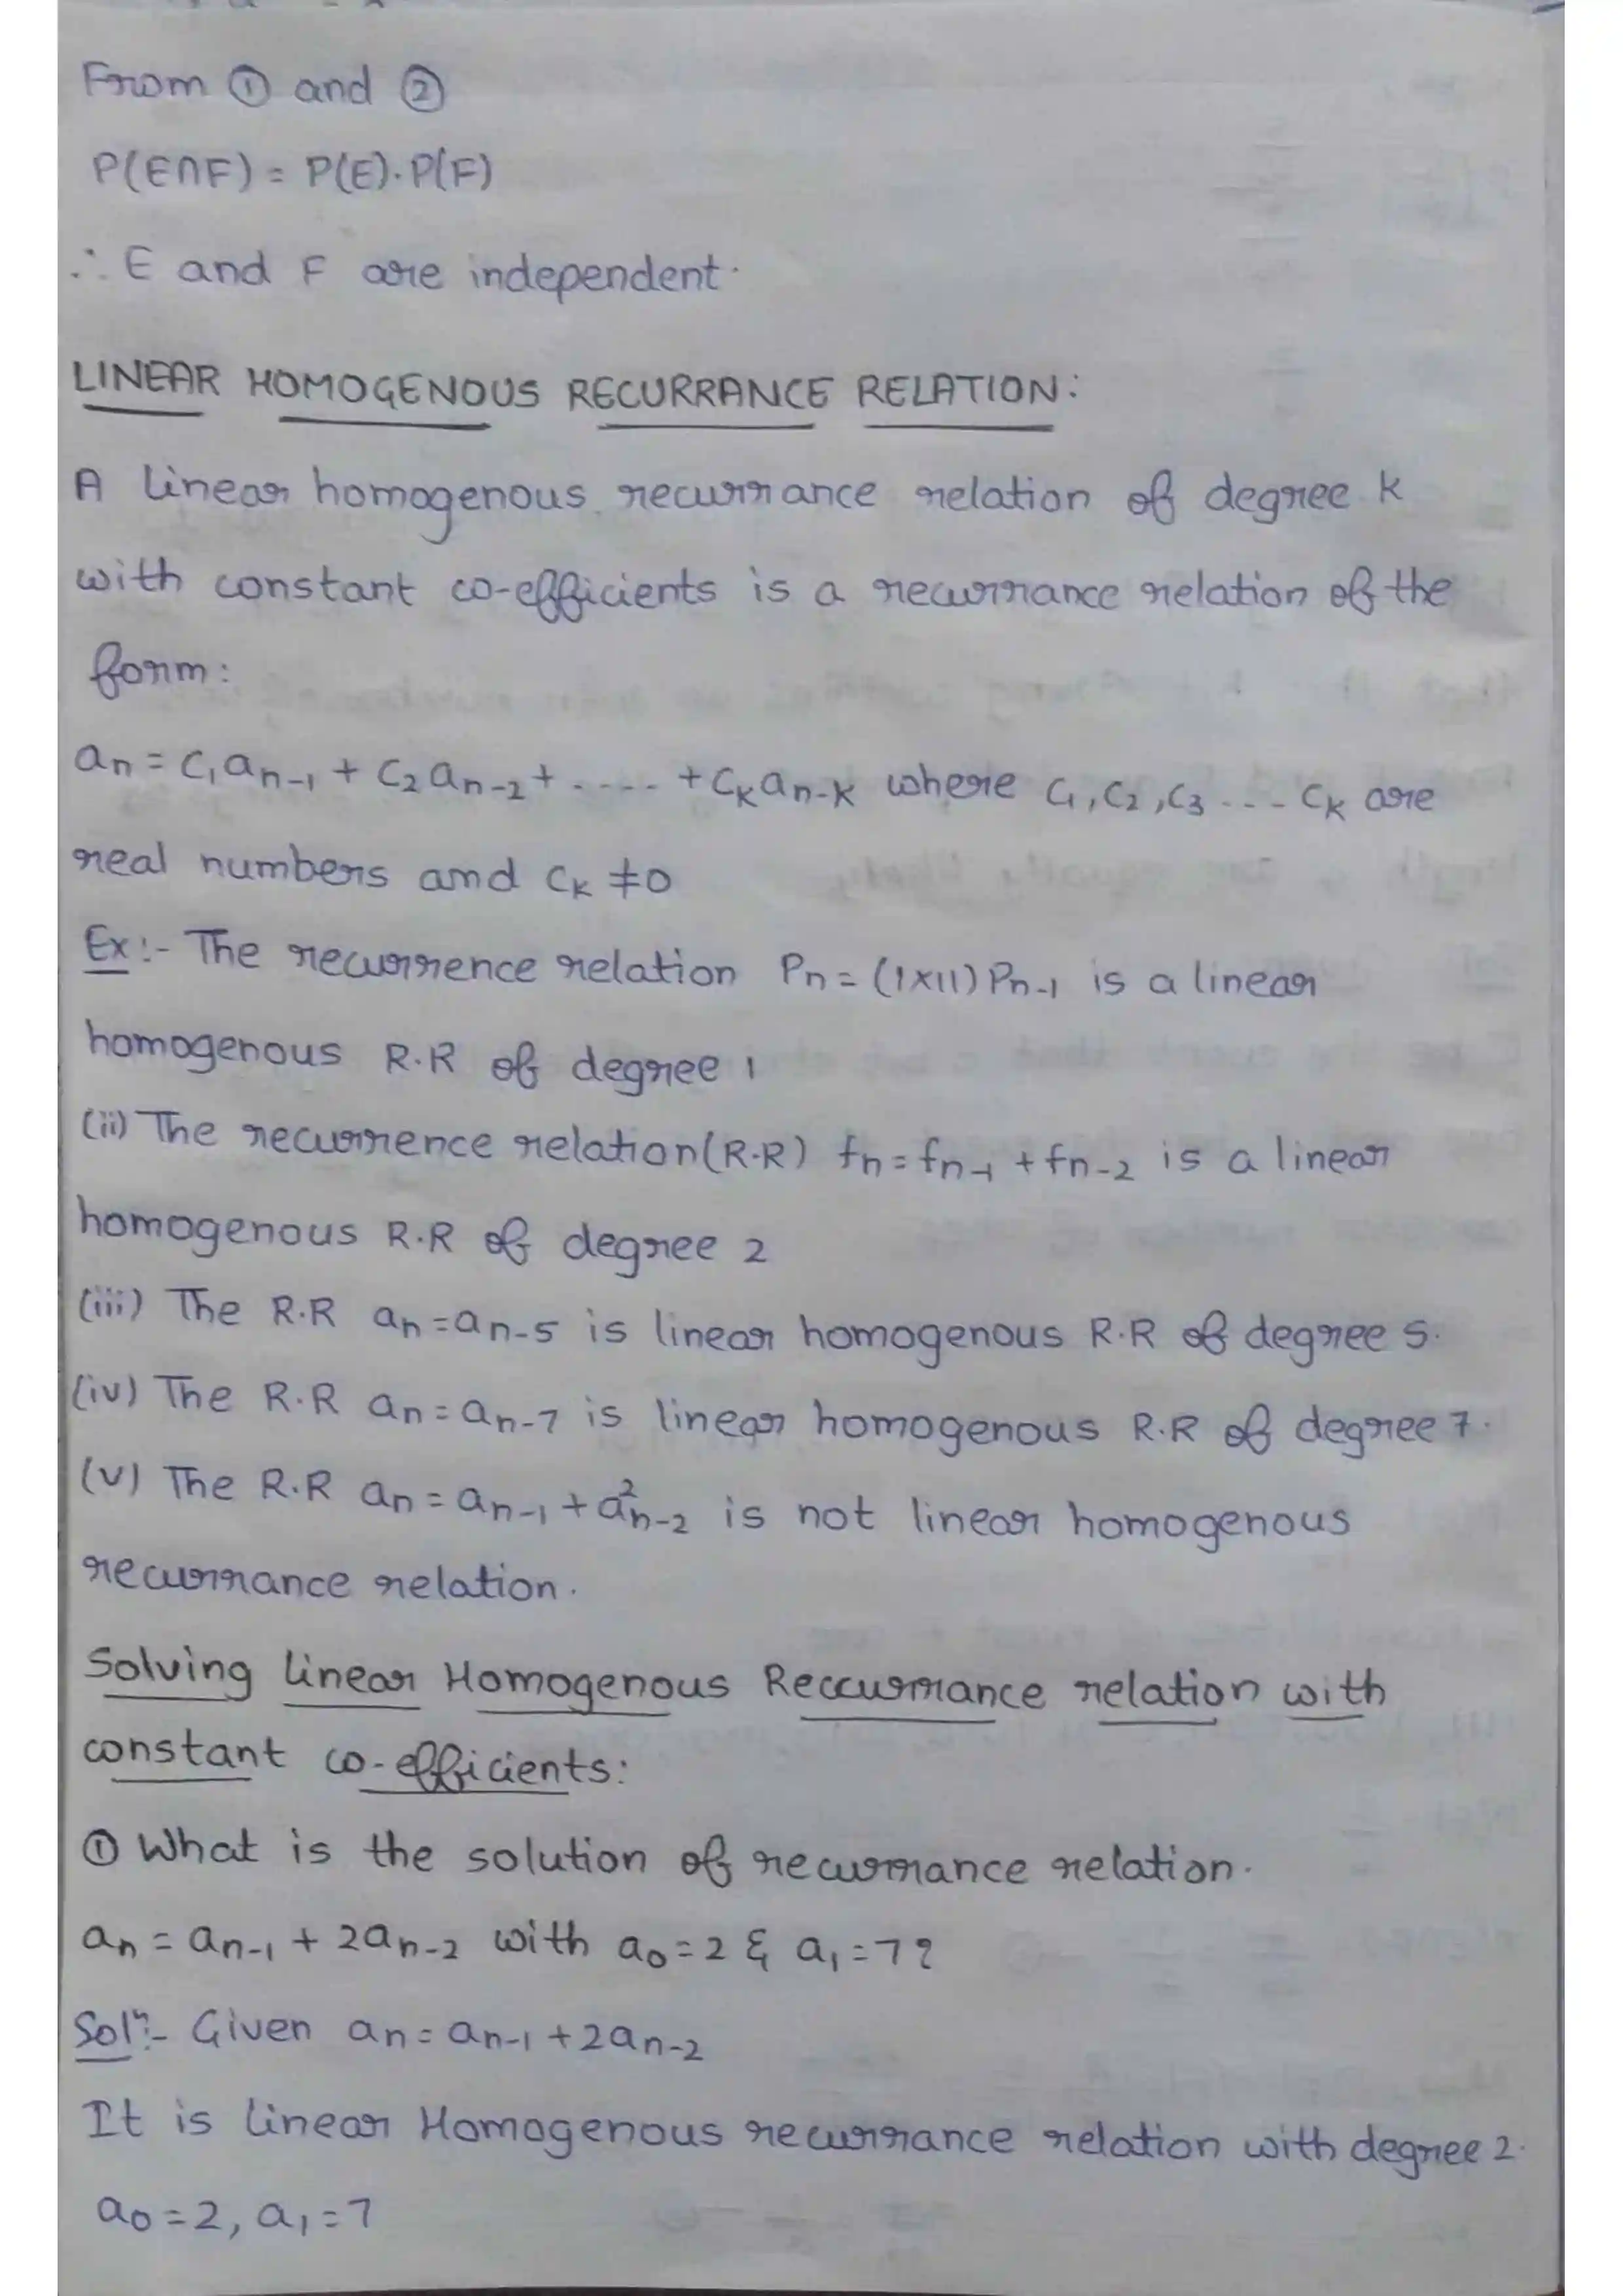 From ① and ②
P(E∩F) = P(E)·P(F)
∴ E and F are independent.
LINEAR HOMOGENOUS RECURRANCE RELATION:
A linear homogenous recurrance relation of degree k
with constant co-efficients is a recurrance relation of the
form:
aₙ = c₁aₙ₋₁ + c₂aₙ₋₂ + ..... + cₖaₙ₋ₖ where c₁, c₂, c₃ ... cₖ are
real numbers and cₖ ≠ 0
Ex:- The recurrence relation Pₙ = (1×11) Pₙ₋₁ is a linear
homogenous R.R of degree 1
(ii) The recurrence relation(R.R) fₙ = fₙ₋₁ + fₙ₋₂ is a linear
homogenous R.R of degree 2
(iii) The R.R aₙ = aₙ₋₅ is linear homogenous R.R of degree 5.
(iv) The R.R aₙ = aₙ₋₇ is linear homogenous R.R of degree 7.
(v) The R.R aₙ = aₙ₋₁ + a²ₙ₋₂ is not linear homogenous
recurrance relation.
Solving linear Homogenous Reccurrance relation with
constant co-efficients:
① What is the solution of recurrance relation.
aₙ = aₙ₋₁ + 2aₙ₋₂ with a₀ = 2 & a₁ = 7?
Solⁿ:- Given aₙ = aₙ₋₁ + 2aₙ₋₂
It is linear Homogenous recurrance relation with degree 2.
a₀ = 2, a₁ = 7